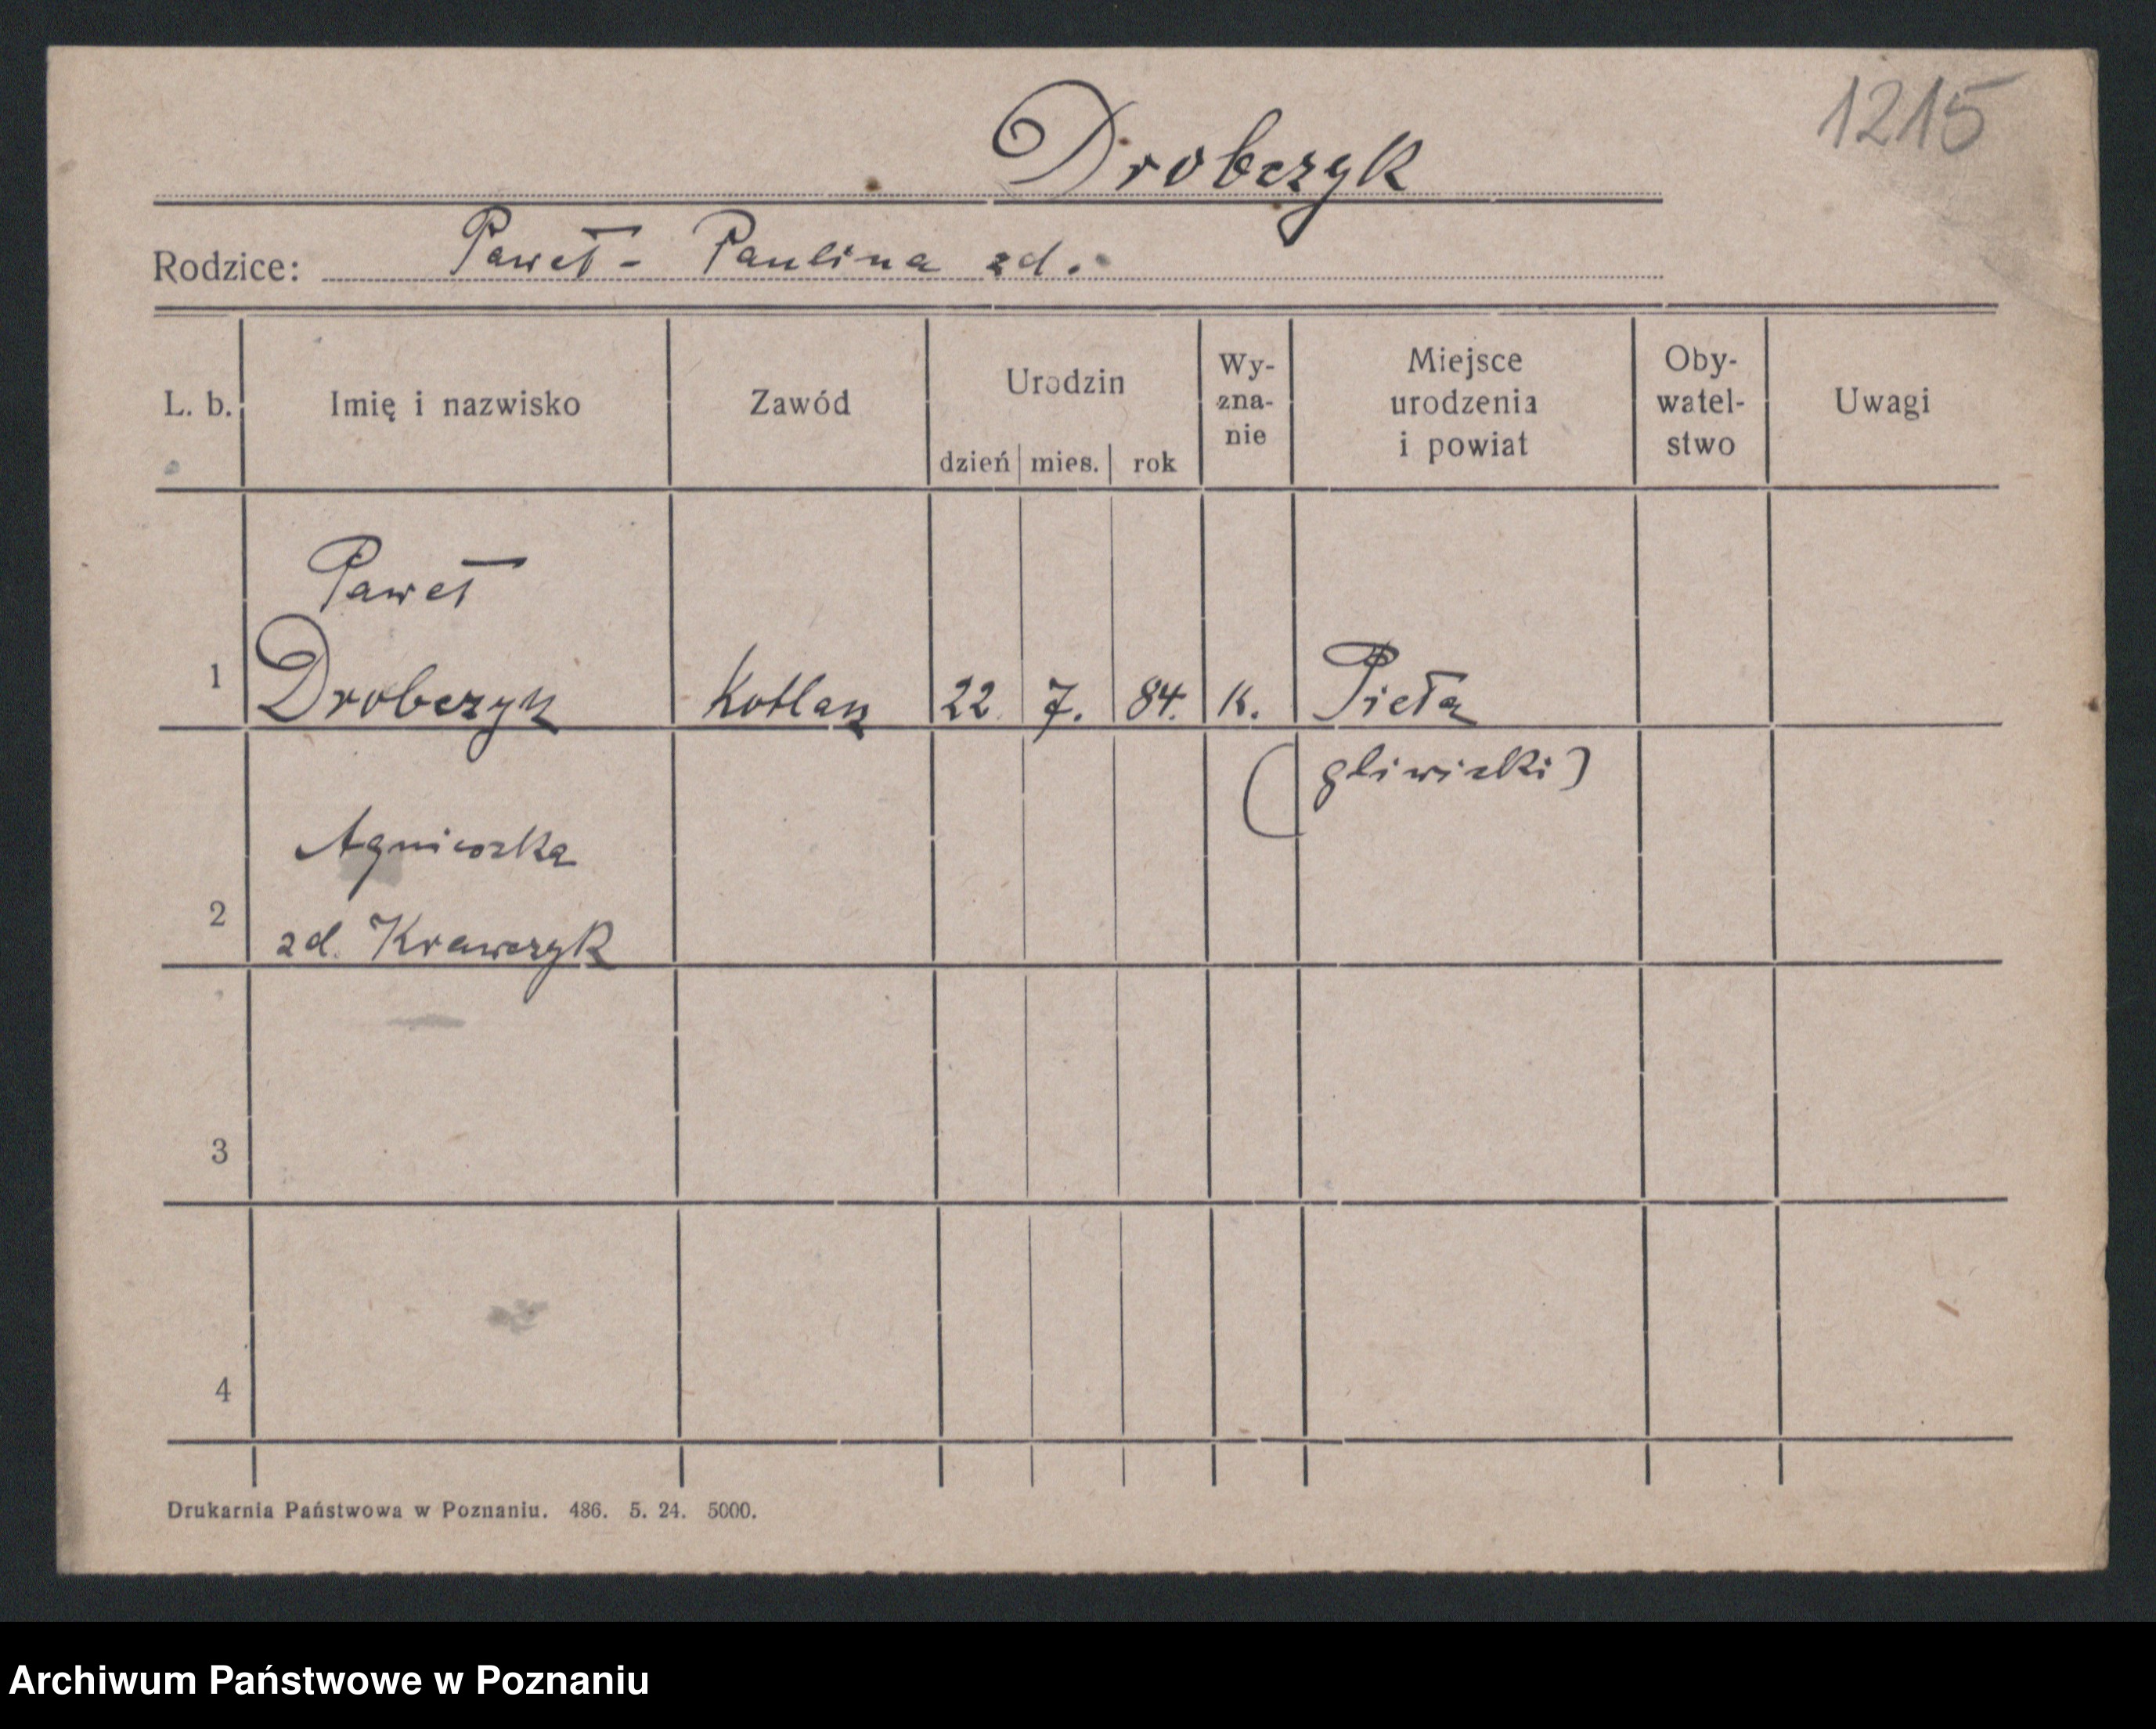 1215
Drobczyk
Rodzice: Paweł - Paulina zd.
L. b. Imię i nazwisko Zawód Urodzin dzień mies. rok Wy-zna-nie Miejsce urodzenia i powiat Oby-watel-stwo Uwagi
Paweł
1 Drobczyk Kotlarz 22. 7. 84. k. Pieła
(gliwicki)
Agnieszka
2 zd. Krawczyk
3
4
Drukarnia Państwowa w Poznaniu. 486. 5. 24. 5000.
Archiwum Państwowe w Poznaniu